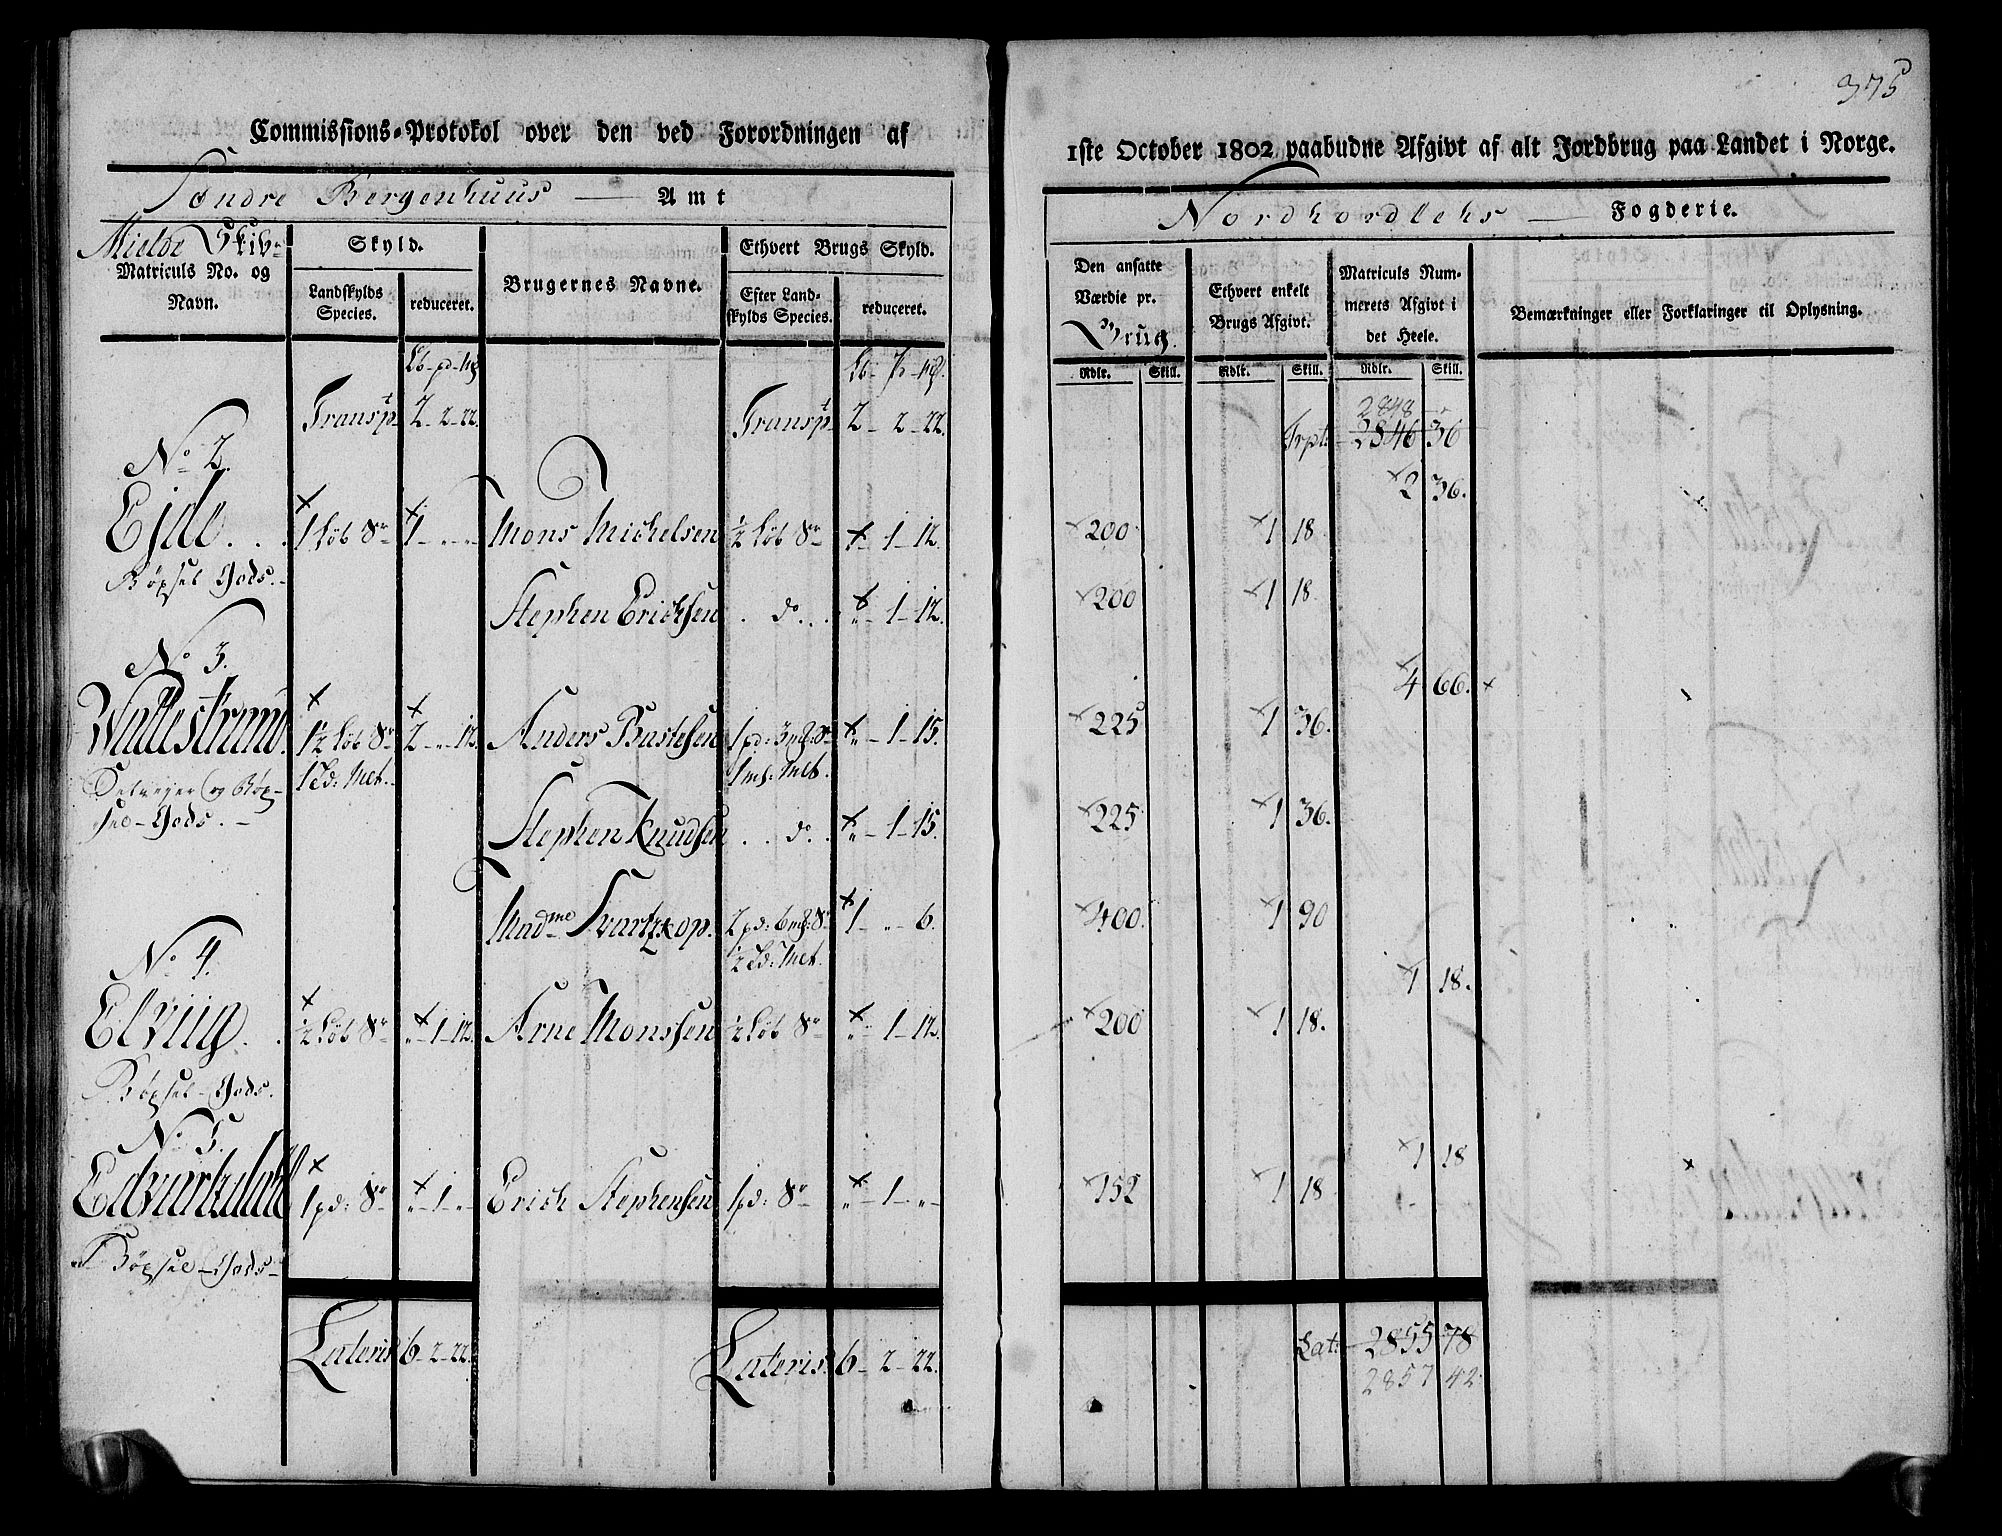 375
Commissions-Protokol over den ved Forordningen af
1ste October 1802 paabudne Afgivt af alt Jordbrug paa Landet i Norge.
Søndre Bergenhuus — Amt
Nordhordlehs — Fogderie.
Mielde Skibr
Matriculs No. og Navn.
Skyld.
Landskylds Species.
reduceret.
Brugernes Navne.
Ethvert Brugs Skyld.
Efter Landskylds Species.
reduceret.
Den ansatte Værdie pr. Brug.
Ethvert enkelt Brugs Afgivt.
Matriculs Nummerets Afgivt i det Heele.
Bemærkninger eller Forklaringer til Oplysning.
Rdlr. Skill. Rdlr. Skill. Rdlr. Skill.
Transpt 2-2-22. Transpt 2-2-22. Trpt: 2848
2846 36
No 2. 2 36.
Ejde. . . 1 Løb Sr 1-"-" Mons Michelsen ½ Løb Sr "-1-12. 200 1 18.
Bøxsel Gods.
Stephen Ericksen . do. . . "-1-12. 200 1 18.
No 3. 4 66.
Wallestrand 1½ Løb Sr 2-"-12. Anders Bastesen 1 pd: 3 mg: Sr "-1-15. 225 1 36.
1 Td: Mel. 1 ml: Mel.
Selveyer og Bøx-
sel-Gods.
Stephen Knudsen . . do. . "-1-15. 225 1 36.
Madme Svartzkop. 2 pd: 6 mg: Sr 1-"-6. 400. 1 90
½ Td: Mel.
No 4. 1 18.
Elviig. . ½ Løb Sr "-1-12. Arne Monssen ½ Løb Sr "-1-12. 200 1 18.
Bøxsel-Gods.
No 5. 1 18
Edvartzdahl 1 pd: Sr "-1-" Erich Stephensen 1 pd: Sr "-1-"- 152 1 18.
Bøxsel-Gods
Lateris 6-2-22. Lateris 6-2-22. Lat: 2855 78
2857 42.